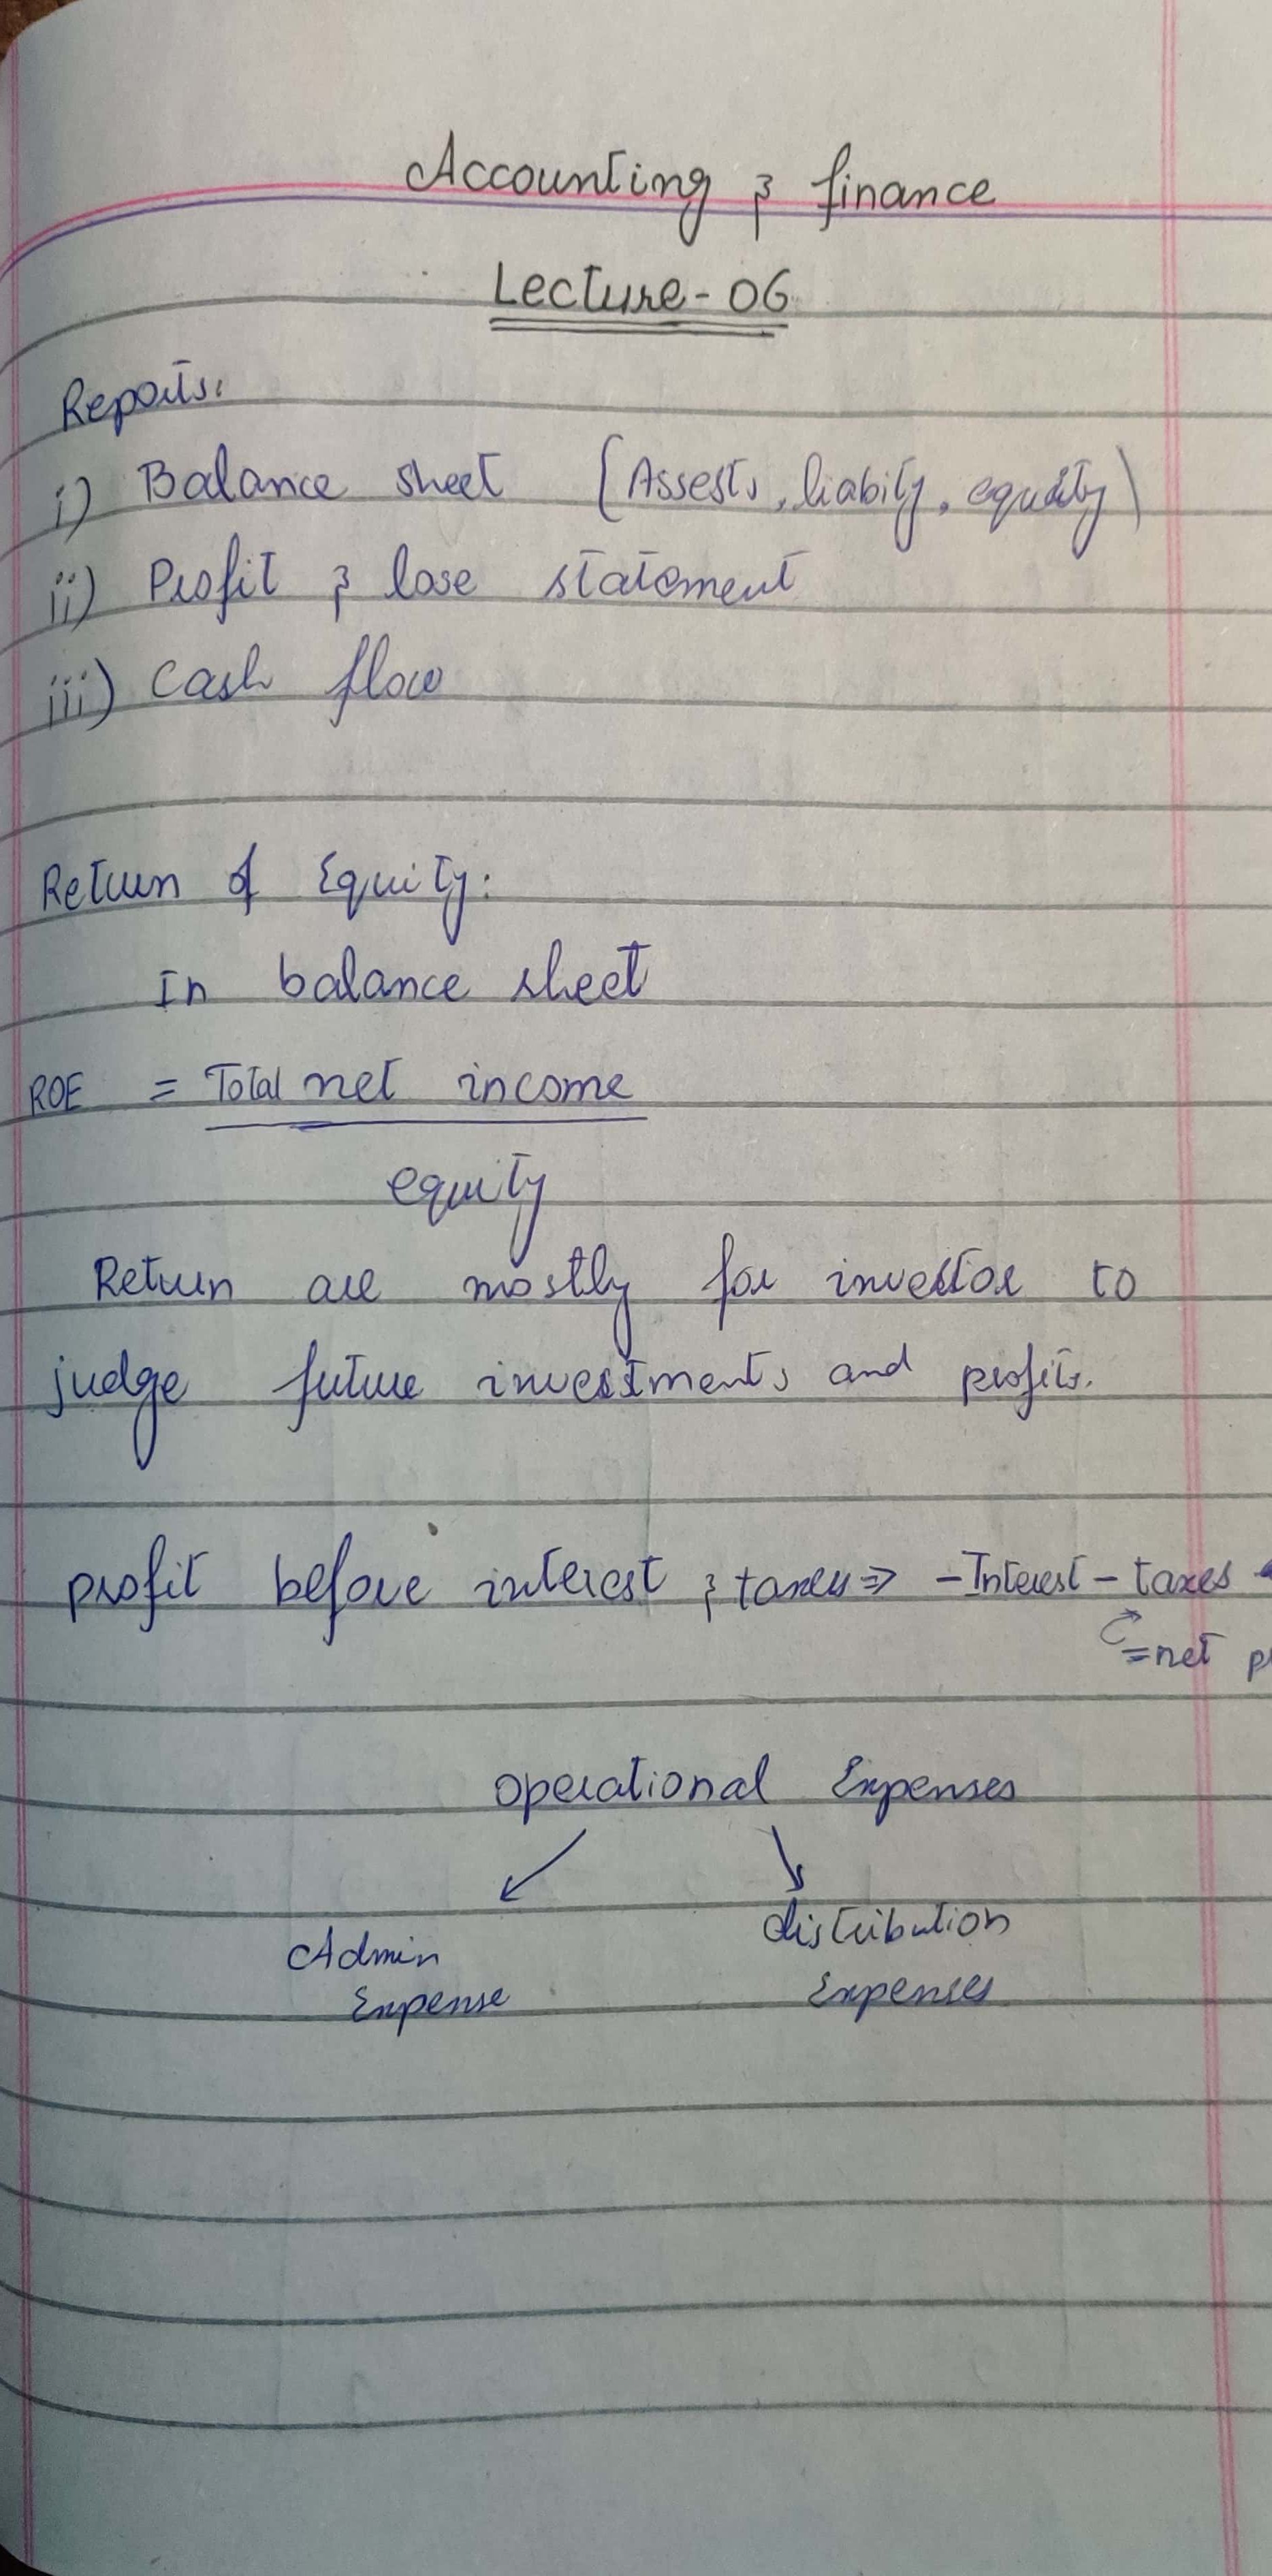 Accounting & finance
Lecture-06
Reports:
i) Balance sheet (Assests, liabity, equity)
ii) Profit & lose statement
iii) Cash flow
Return of Equity:
In balance sheet
ROE = Total net income
equity
Return are mostly for investor to
judge future investments and profits.
profit before interest & taxes ⇒ -Interest - taxes
=net
Operational Expenses
Admin distribution
Expense Expenses